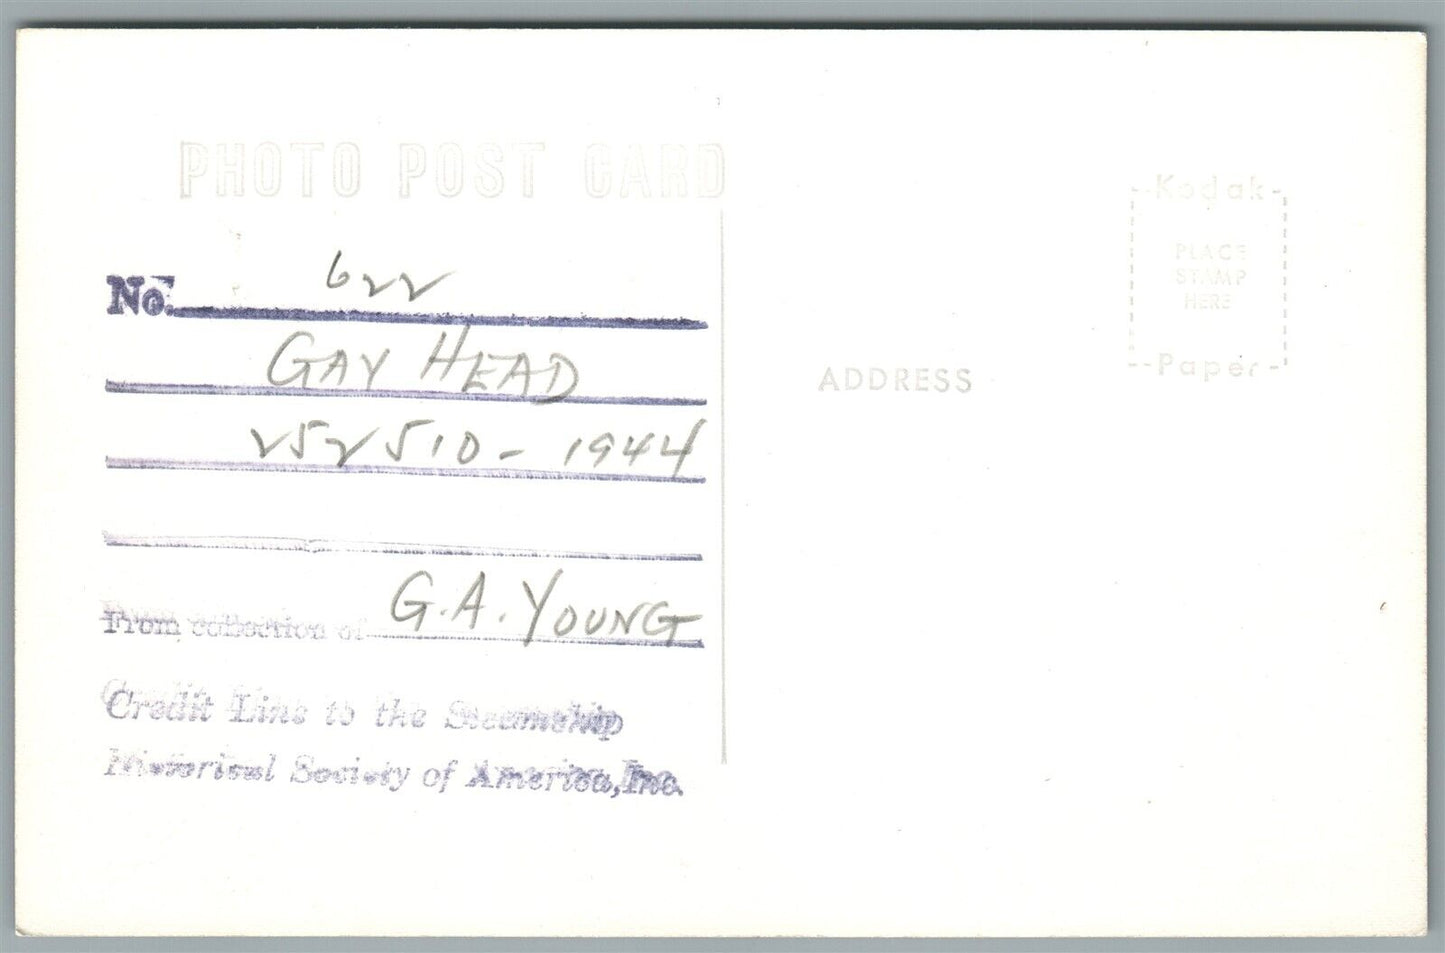 PHOTO POST CARD
No. 622
GAY HEAD
252510 - 1944
From collection of G. A. YOUNG
Credit Line to the Steamship
Historical Society of America, Inc.
ADDRESS
Kodak
PLACE
STAMP
HERE
Paper